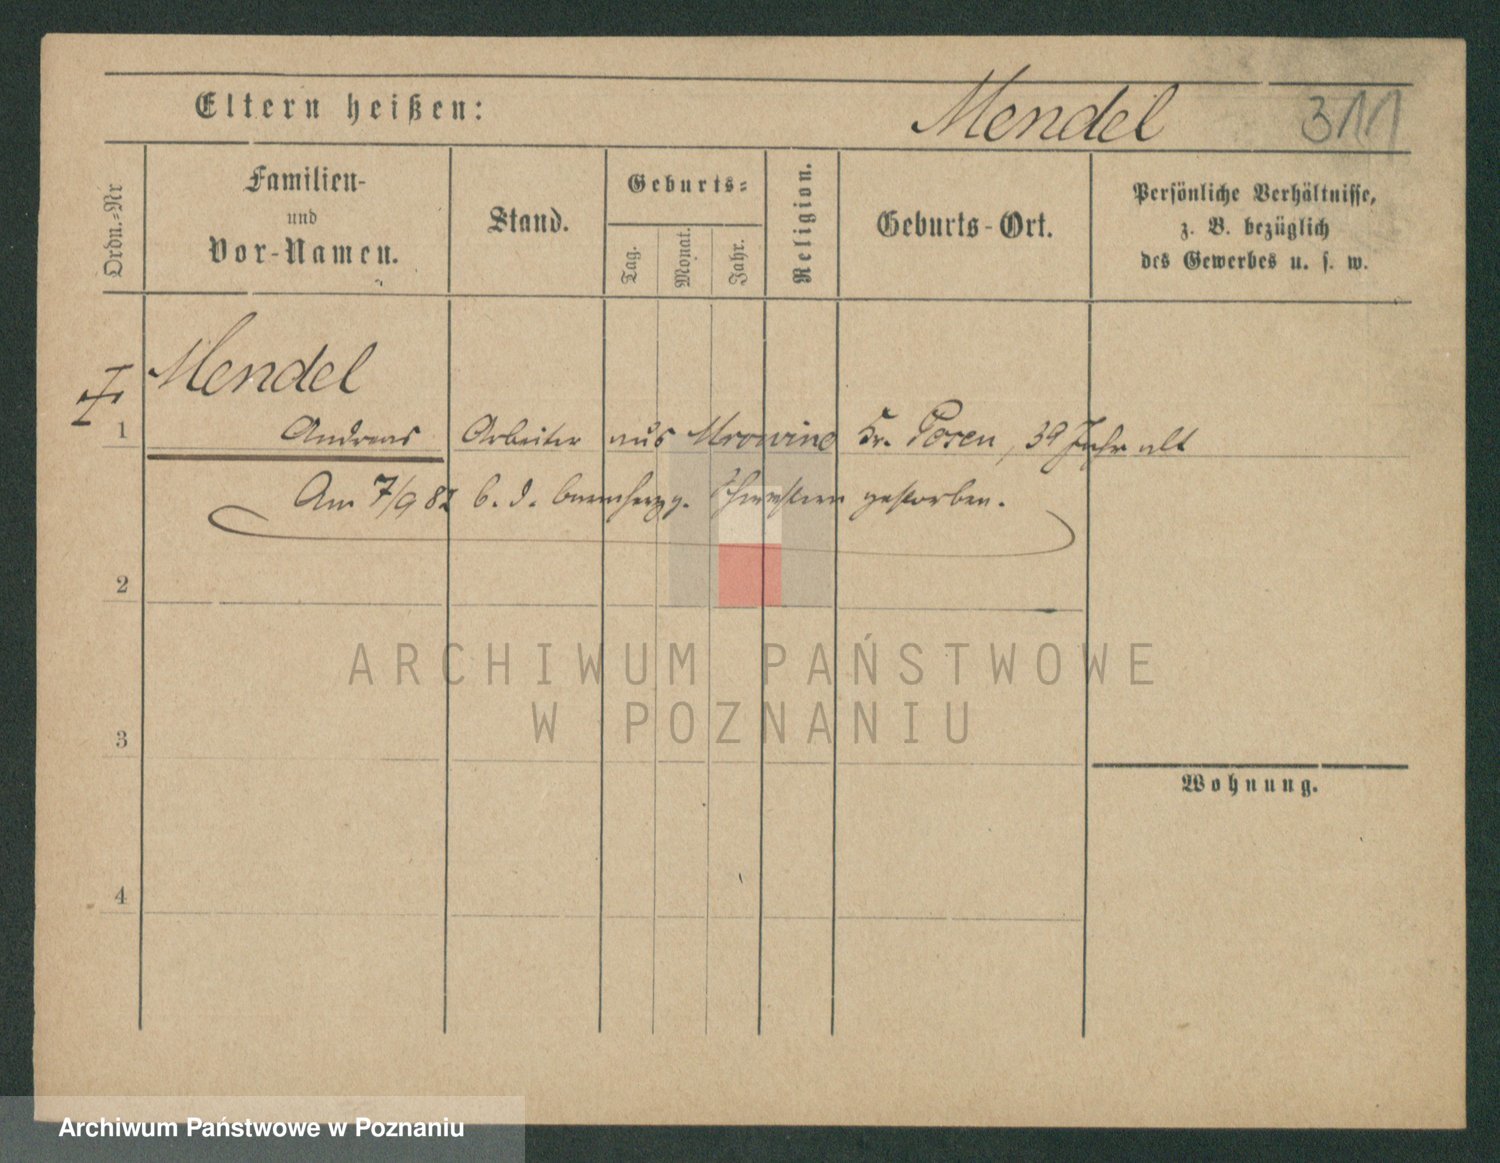 Eltern heißen:
Mendel
311
Ordn.=Nr
Familien-
und
Vor-Namen.
Stand.
Geburts=
Tag.
Monat.
Jahr.
Religion.
Geburts-Ort.
Persönliche Verhältnisse,
z. B. bezüglich
des Gewerbes u. s. w.
Mendel
1 Andreas Arbeiter aus Mrowino Kr. Posen, 39 Jahr alt
Am 7/9 82 b. d. barmherzg. Schwestern gestorben.
2
ARCHIWUM PAŃSTWOWE
W POZNANIU
3
Wohnung.
4
Archiwum Państwowe w Poznaniu